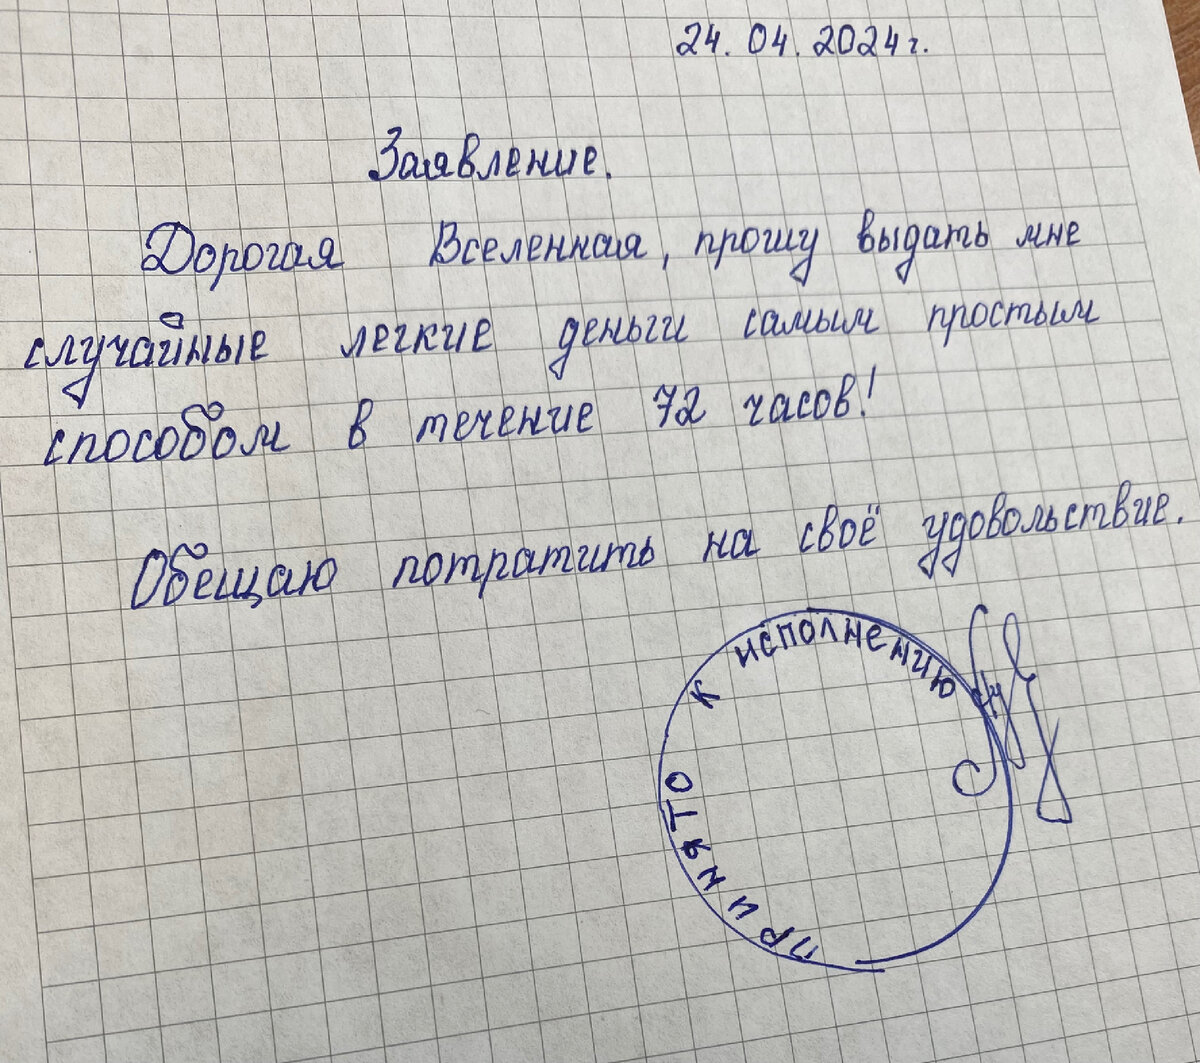 24. 04. 2024 г.
Заявление.
Дорогая Вселенная, прошу выдать мне
случайные легкие деньги самым простым
способом в течение 72 часов!
Обещаю потратить на своё удовольствие.
ПРИНЯТО К ИСПОЛНЕНИЮ